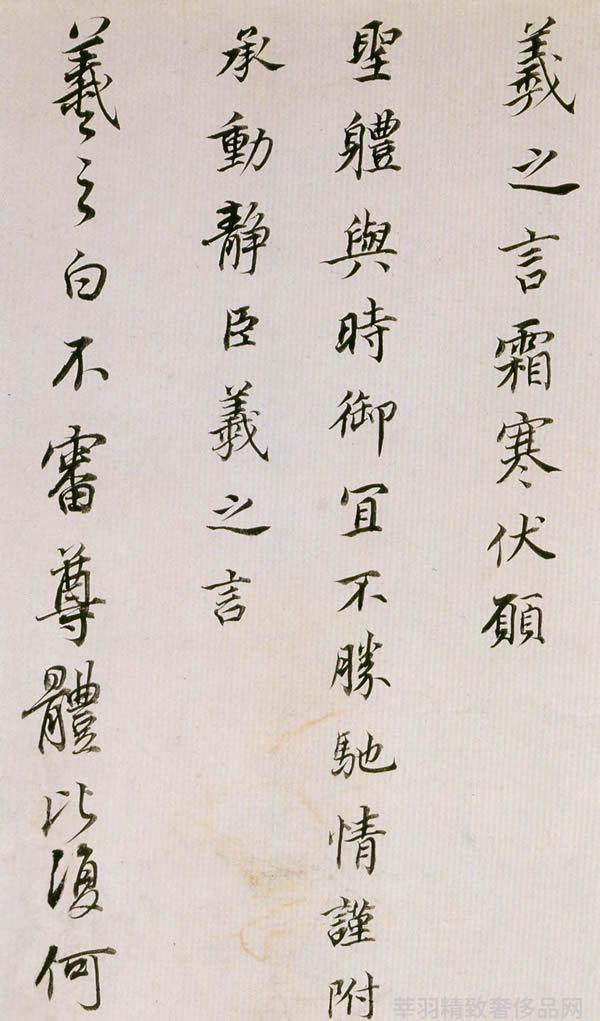 羲之言霜寒伏願
聖軆與時御宜不勝馳情謹附
承動靜臣羲之言
羲之白不審尊體比復何
莘羽精致奢侈品网